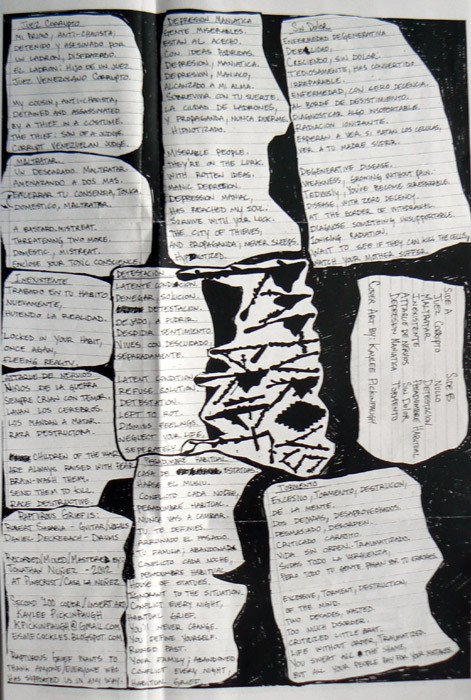 JUEZ CORRUPTO
MI PRIMO, ANTI-CHAVISTA;
DETENIDO Y ASESINADO POR
UN LADRON, DISFRAZADO.
EL LADRON: HIJO DE UN JUEZ.
JUEZ VENEZOLANO CORRUPTO.
MY COUSIN, ANTI-CHAVISTA,
DETAINED AND ASSASSINATED
BY A THIEF IN A COSTUME.
THE THIEF: SON OF A JUDGE.
CORRUPT VENEZUELAN JUDGE.
MALTRATAR
UN DESCARADO. MALTRATAR.
AMENAZANDO A DOS MAS.
ENCUENTRAR TU CONSENSIA TOXICA.
DOMESTICO, MALTRATAR
A BASTARD. MISTREAT.
THREATENING TWO MORE.
DOMESTIC, MISTREAT.
YOUR TOXIC CONSCIENCE.
INEXISTENTE
TRABADO EN TU HABITO,
NUEVAMENTE.
HUYENDO LA REALIDAD.
LOCKED IN YOUR HABIT,
ONCE AGAIN,
FLEEING REALITY.
ATTAQUE DE NERVIOS
NIÑOS DE LA GUERRA
SIEMPRE CRIAN CON TEMOR.
LAVAN LOS CEREBROS
LOS MANDAN A MATAR.
RATA DESTRUCTORA.
CHILDREN OF THE WAR
ARE ALWAYS RAISED WITH FEAR.
BRAIN-WASH THEM,
SEND THEM TO KILL.
DESTRUCTIVE.
RAPTUROUS GRIEF IS:
GUITAR/VOCALS
DANIEL - DRUMS
RECORDED/MIXED/MASTERED BY:
JONATHAN NUÑEZ - 2012
AT PINECRUST/CASA LA NUÑEZ
SECOND '200 COVER/INSERT ART:
KAYLEE PICKINPAUGH
KPICKINPAUGH@GMAIL.COM
.BLOGSPOT.COM
RAPTUROUS GRIEF WANTS TO
THANK ANYONE/EVERYONE WHO
HAS SUPPORTED US IN ANY WAY.
DEPRESION MANIATICA
GENTE MISERABLES.
ESTAN AL ACECHO.
CON IDEAS PODRIDAS.
DEPRESION, MANIATICA.
DEPRESION, MANIACO,
ALCANZADO A MI ALMA.
SOBREVIVIR CON TU SUERTE.
LA CIUDAD DE LADRONES,
Y PROPAGANDA, NUNCA DUERME
HIPNOTIZADO.
MISERABLE PEOPLE.
THEY'RE ON THE LURK
WITH ROTTEN IDEAS.
MANIC DEPRESSION.
DEPRESSION MANIAC,
HAS REACHED MY SOUL.
SURVIVE WITH YOUR LUCK.
THE CITY OF THIEVES,
AND PROPAGANDA, NEVER SLEEPS.
HYPNOTIZED.
DETESTACION
LATENTE CONDICION.
DENEGAR SOLUCION.
DETESTACION.
DEJADO A PUDRIR.
DESPEDIR SENTIMIENTO
VIVES CON DESCUIDADO.
SEPARADAMENTE.
LATENT CONDITION.
REFUSE SOLUTION.
DETESTATION.
LEFT TO ROT.
DISMISS FEELINGS,
NEGLECT YOUR LIFE,
SEPERATELY.
PESADUMBRE HABITUAL
CASA DE ESTATUAS
CONFLICTO CADA NOCHE,
PESADUMBRE HABITUAL.
NUNCA VAS A CAMBIAR.
TU TE DEFINES.
ARRUINADO EL PASADO.
TU FAMILIA; ABANDONADA
CONFLICTO CADA NOCHE,
PESADUMBRE HABITUAL.
HOUSE OF STATUES.
IGNORANT TO THE SITUATION.
CONFLICT EVERY NIGHT,
HABITUAL GRIEF.
YOU'LL NEVER CHANGE.
YOU DEFINE YOURSELF.
RUINED PAST.
YOUR FAMILY; ABANDONED
CONFLICT EVERY NIGHT,
HABITUAL GRIEF.
SIN DOLOR
ENFERMEDAD DEGENERATIVA
DEBILIDAD,
CRECIENDO, SIN DOLOR.
TEDIOSAMENTE, HAS CONVERTIDO
IRREPARABLE.
ENFERMEDAD, CON CERO DECENCIA.
AL BORDE DE DESISTIMIENTO.
DIAGNOSTICAR ALGO INSOPORTABLE.
RADIACION IONIZANTE.
ESPERAR A VER SI MATAN LOS CELULAS,
VER A TU MADRE SUFRIR.
DEGENERATIVE DISEASE.
WEAKNESS, GROWING WITHOUT PAIN.
TEDIOUSLY, YOU'VE BECOME IRREPARABLE
DISEASE, WITH ZERO DECENCY.
AT THE BORDER OF WITHDRAWAL.
DIAGNOSE SOMETHING INSUPPORTABLE
IONIZING RADIATION.
WAIT TO SEE IF THEY CAN KILL THE CELLS,
WHILE YOUR MOTHER SUFFER.
SIDE A
JUEZ CORRUPTO
MALTRATAR
INEXISTENTE
ATTAQUE DE NERVIOS
DEPRESION MANIATICA
SIDE B:
NULO
DETESTACION
PESADUMBRE HABITUAL
SIN DOLOR
TORMENTO
COVER ART BY: KAYLEE PICKINPAUGH
TORMENTO
EXCESIVO, TORMENTO, DESTRUCCION,
DE LA MENTE.
DOS DECADAS, DESAPROVECHADOS.
DEMASIADO DESORDEN.
CRITICADO CARAJITO.
VIDA SIN ORDEN, TRAUMATIZADO.
SUDAS TODO LA VERGUENZA,
PERO TODO TU GENTE PAGAN POR TU ERRORES.
EXCESSIVE, TORMENT, DESTRUCTION,
OF THE MIND.
TWO DECADES, WASTED.
TOO MUCH DISORDER.
CRITICIZED LITTLE BRAT.
LIFE WITHOUT ORDER, TRAUMATIZED.
YOU SWEAT ALL THE SHAME,
BUT ALL YOUR PEOPLE PAY FOR YOUR MISTAKES.